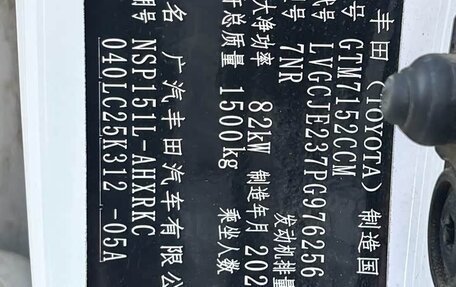 丰田 (TOYOTA) 制造国
号 GTM7152CCM
号 LVGCJE237PG976256
号 7NR 发动机排量
大净功率 82kW 制造年月 202
总质量 1500kg 乘坐人数
名 广汽丰田汽车有限公
号 NSP151L-AHXRKC
040LC25K312 -05A